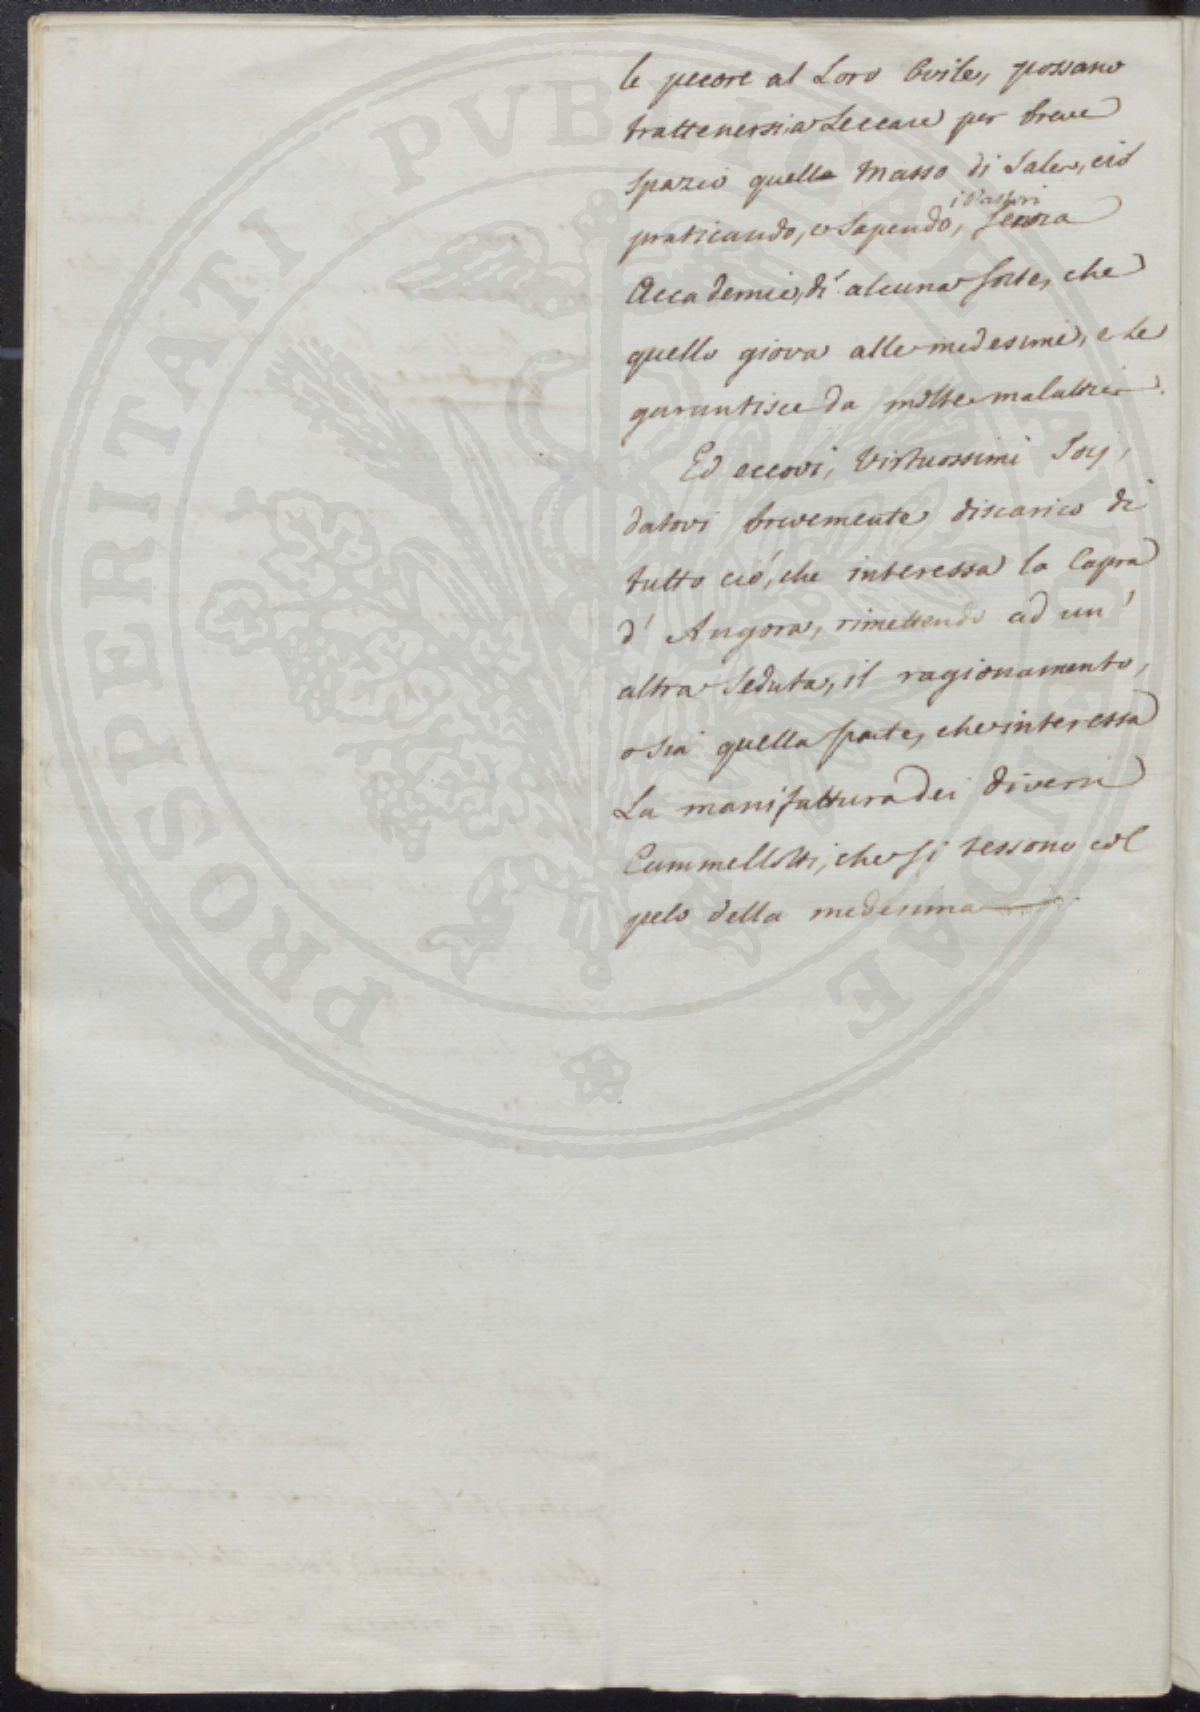 le pecore al Loro Ovile, possano
trattenersi a Leccare per breve
spazio quello Masso di Sale, ciò
i Pastori
praticando, e Sapendo, senza
Accademie, di alcuna sorte, che
quello giova alle medesime, e le
garantisce da molte malattie.
Ed eccovi, Virtuosissimi Socj,
datovi brevemente discarico di
tutto ciò, che interessa la Capra
d' Angora, rimettendo ad un'
altra Seduta, il ragionamento,
o sia quella parte, che interessa
La manifattura dei diversi
Cammellotti, che si tessono col
pelo della medesima
PROSPERITATI PVBLICAE AVGENDAE